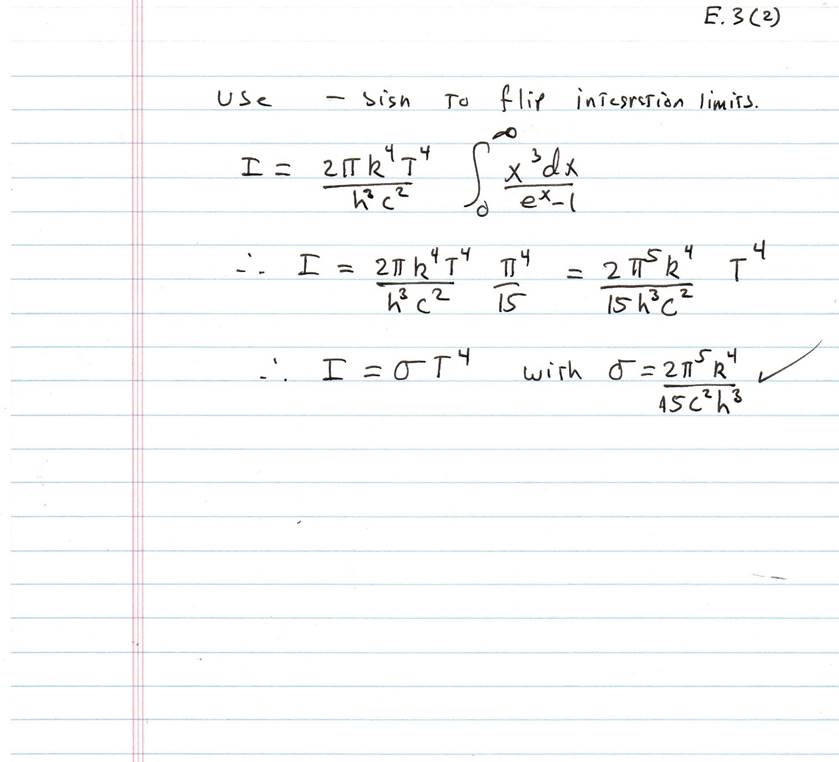 E.3(2)
Use – sign to flip integration limits.
I = 2πk⁴T⁴/h³c² ∫₀^∞ x³dx/eˣ–1
∴ I = 2πk⁴T⁴/h³c² π⁴/15 = 2π⁵k⁴/15h³c² T⁴
∴ I = σT⁴ with σ = 2π⁵k⁴/15c²h³ ✓